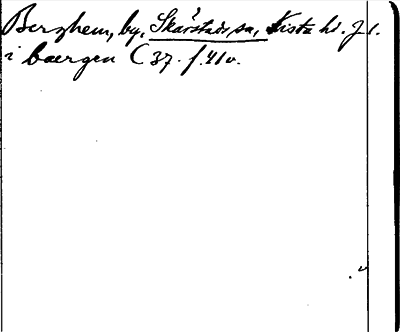 Berghem, by, Skärstads sn, Vista hd. J l.
i bærgen C 37. f. 41 v.